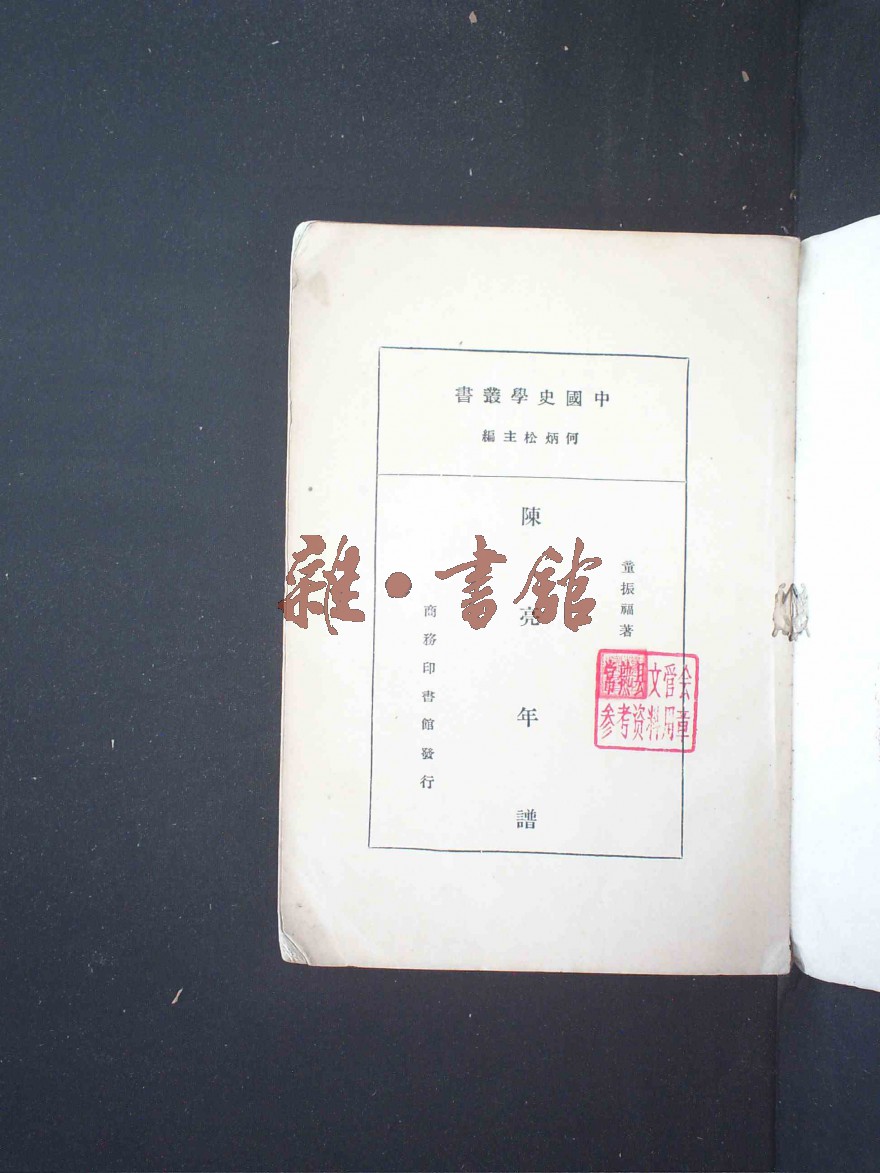 中國史學叢書
何炳松主編
董振福著
陳亮年譜
商務印書館發行
常熟县文管会
参考资料用章
雜·書館